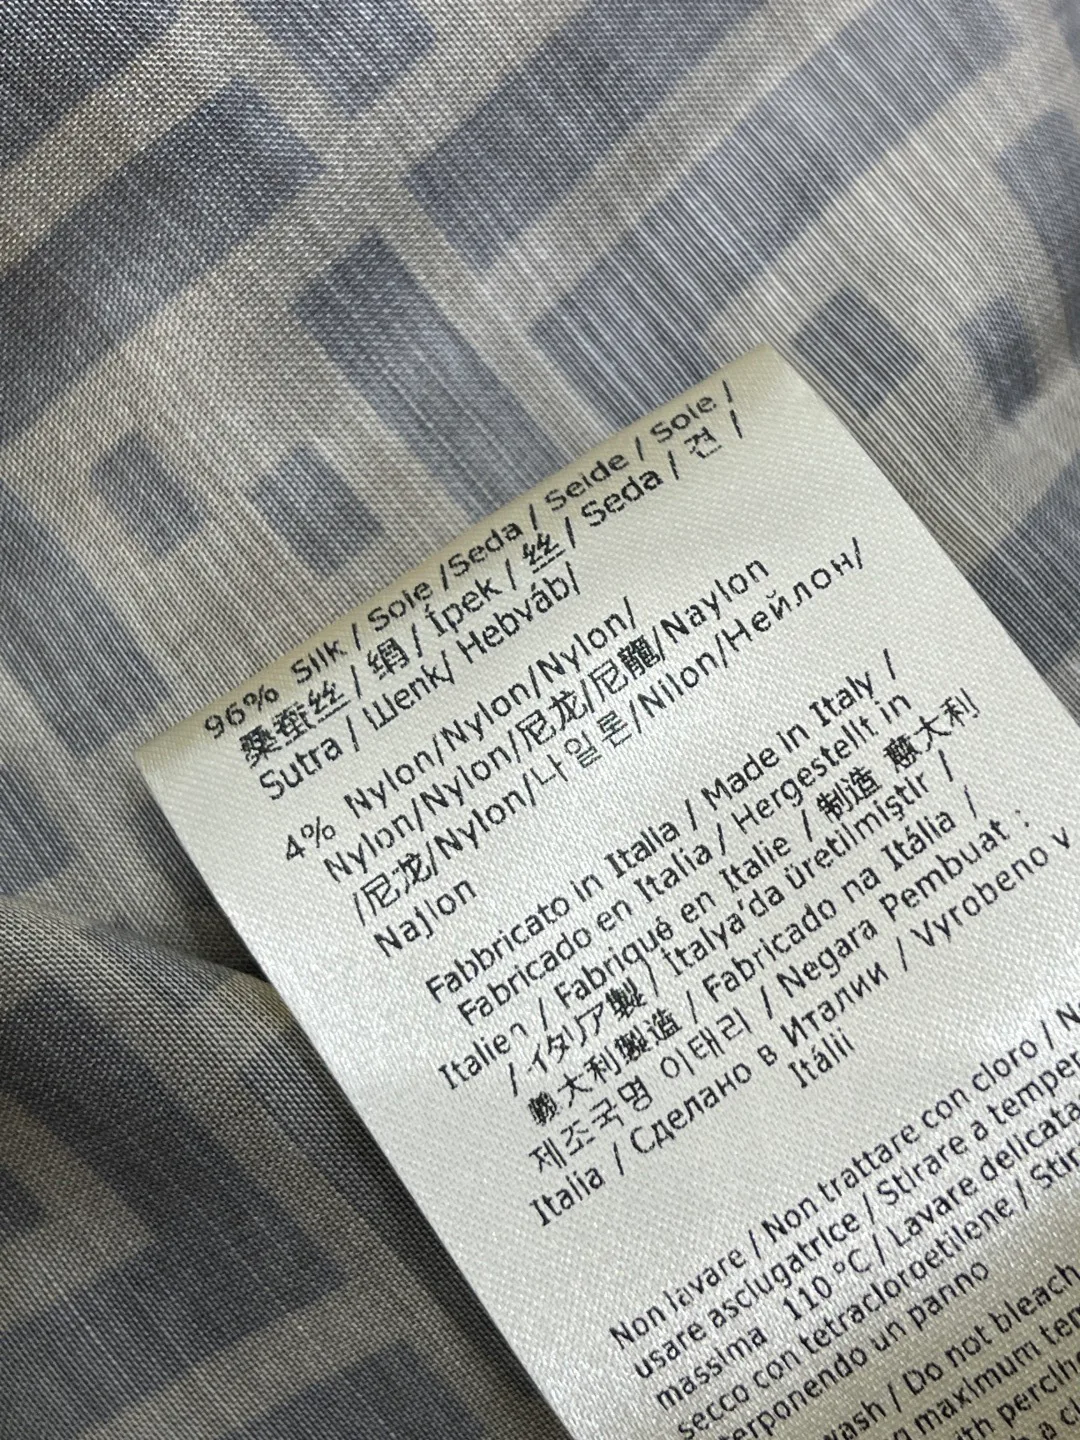 96% Silk / Sole /Seda / Seide / Soie /
桑蚕丝 / 絹 / Ípek / 丝 / Seda / 견 /
Sutra / Шenk/ Hebváb/
4% Nylon/Nylon/Nylon/
Nylon/Nylon/尼龙/尼龍/Naylon
/尼龙/Nylon/나일론/Nilon/Нейлон/
Najlon
Fabbricato in Italia / Made in Italy /
Fabricado en Italia / Hergestellt in
Italien / Fabriqué en Italie / 制造 意大利
/ イタリア製 / İtalya'da üretilmiştir /
意大利製造 / Fabricado na Itália /
제조국명 이태리 / Negara Pembuat :
Italia / Сделано в Италии / Vyrobeno v
Itálii
Non lavare / Non trattare con cloro / N
usare asciugatrice / Stirare a temper
massima 110 °C / Lavare delicata
secco con tetracloroetilene / Stir
terponendo un panno
wash / Do not bleach
maximum tem
ith perchl
h a cl